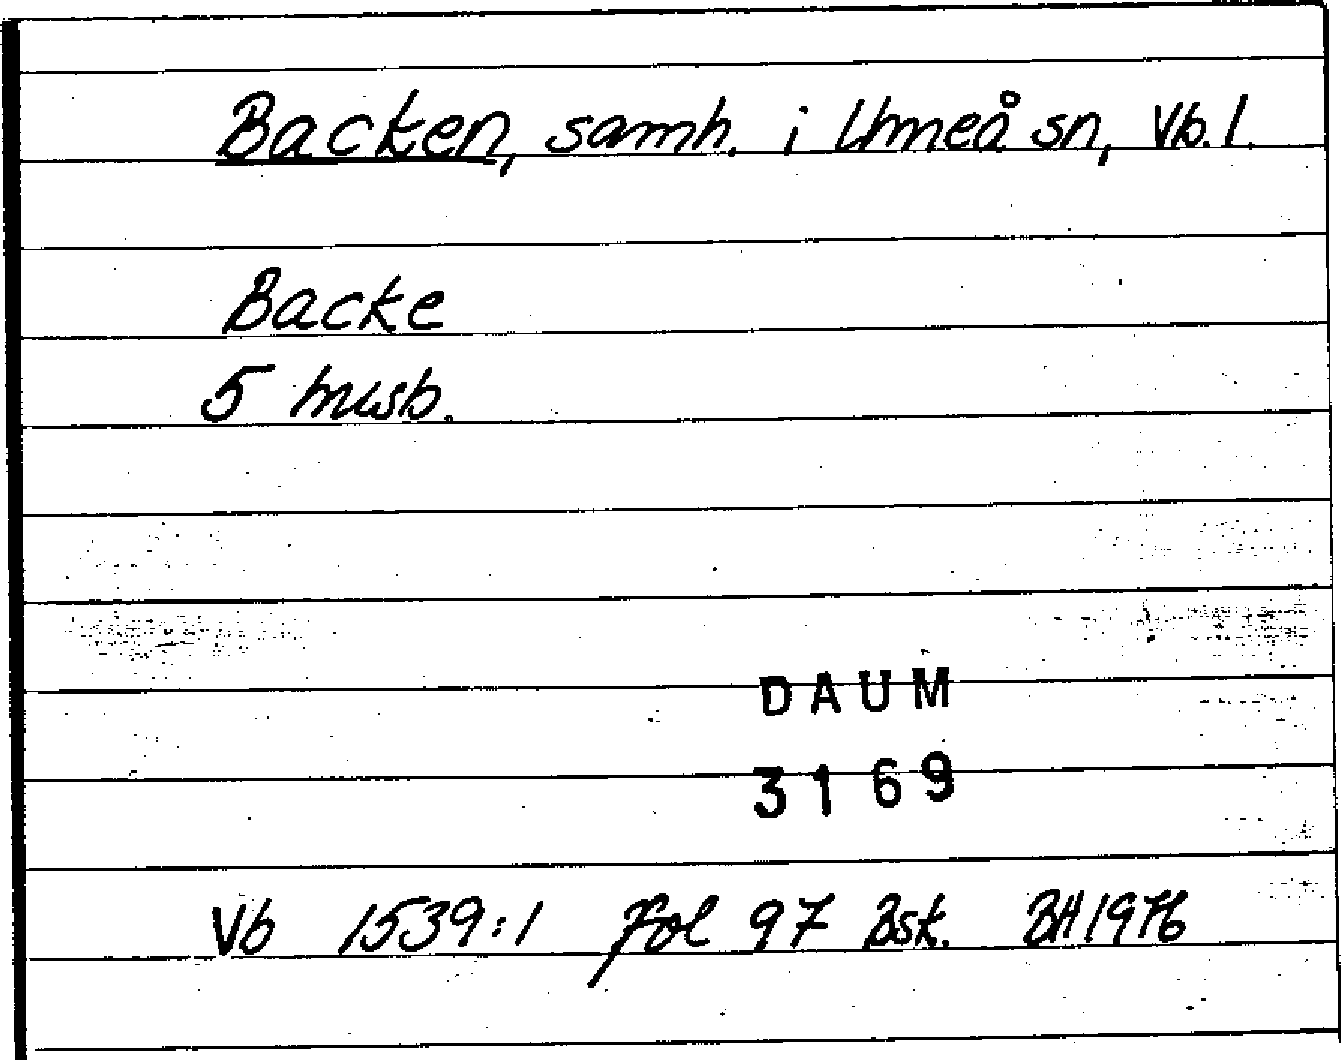 Backen, samh. i Umeå sn, Vb. l.
Backe
5 husb.
DAUM
3169
Vb 1539:1 fol 97 Bsk. BH 1976